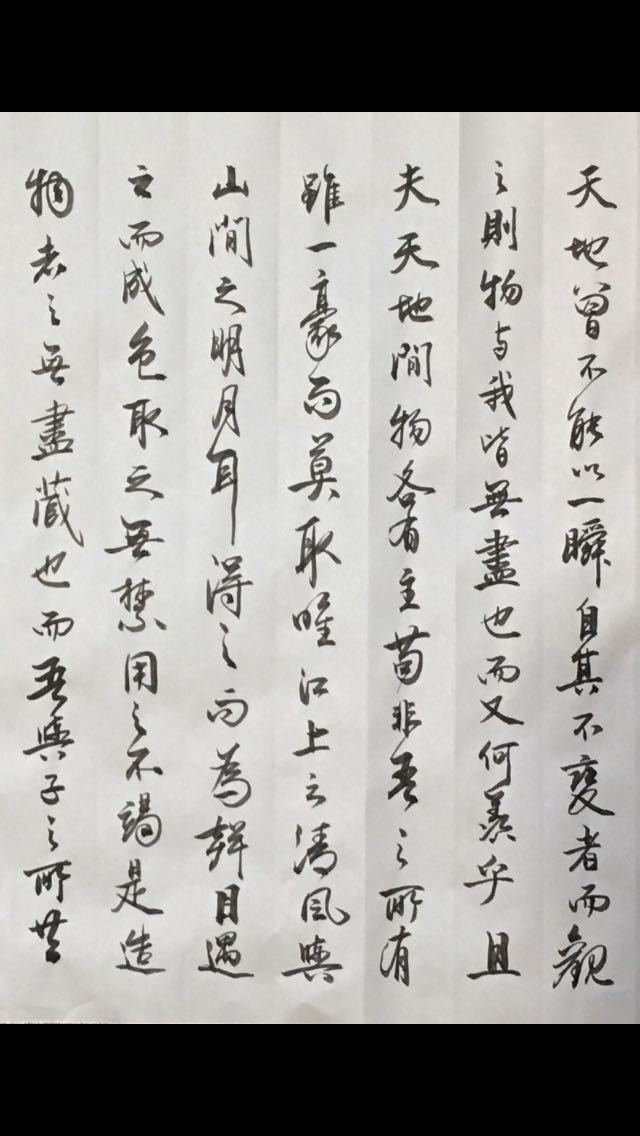 天地曾不能以一瞬自其不變者而觀
之則物与我皆無盡也而又何羨乎且
夫天地間物各有主苟非吾之所有
雖一豪而莫取唯江上之清風與
山間之明月耳得之而為聲目遇
之而成色取之無禁用之不竭是造
物者之無盡藏也而吾與子之所共